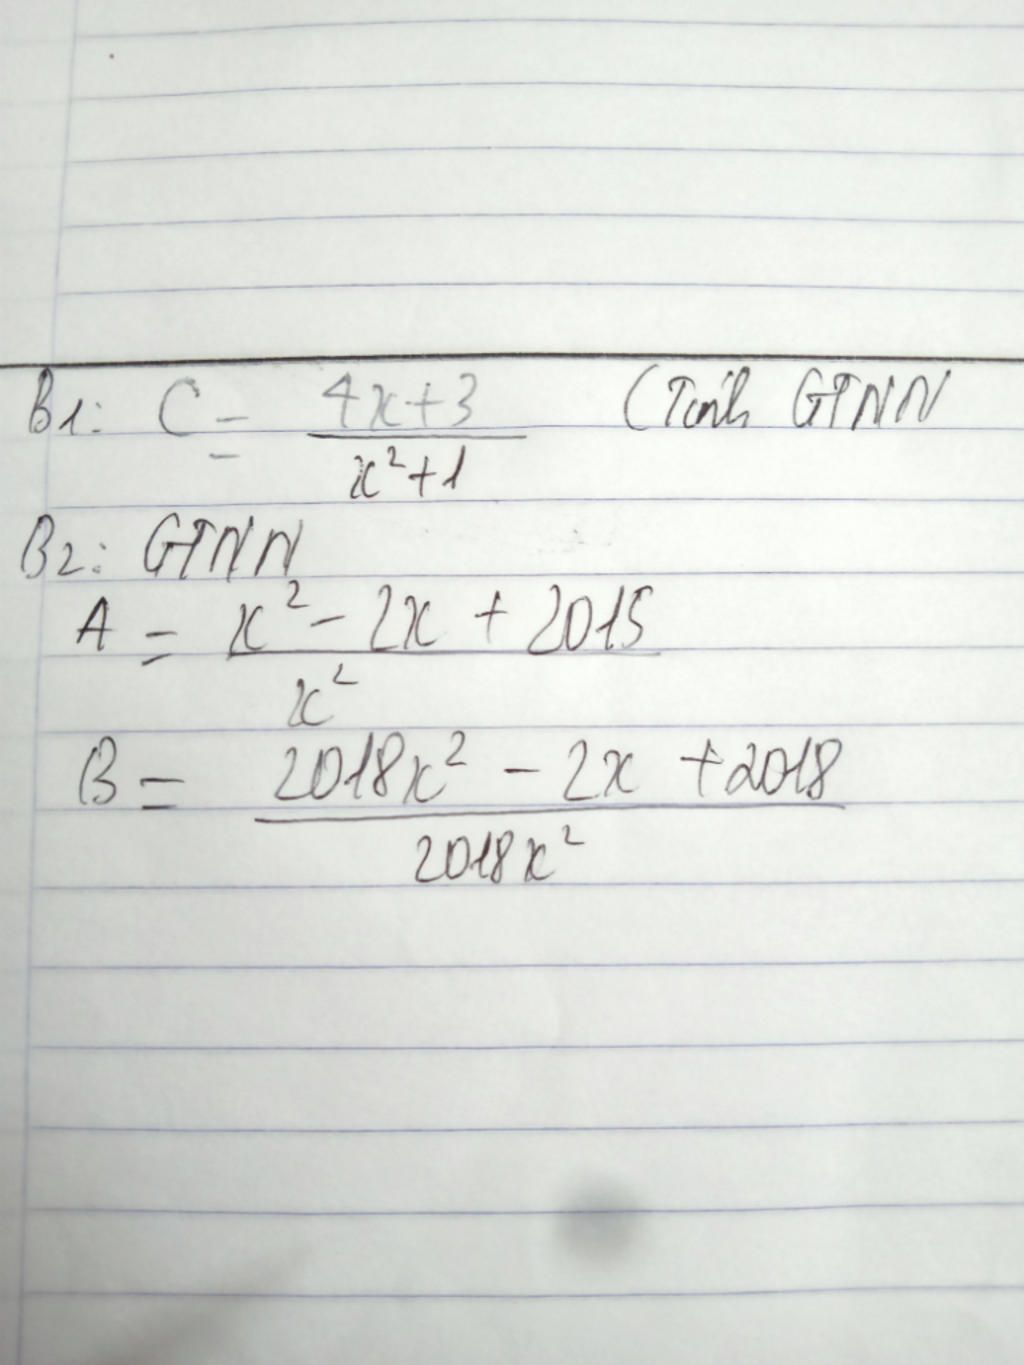 B1: C = 4x+3 (Tính GTNN
x²+1
B2: GTNN
A = x² - 2x + 2015
x²
B = 2018x² - 2x + 2018
2018x²